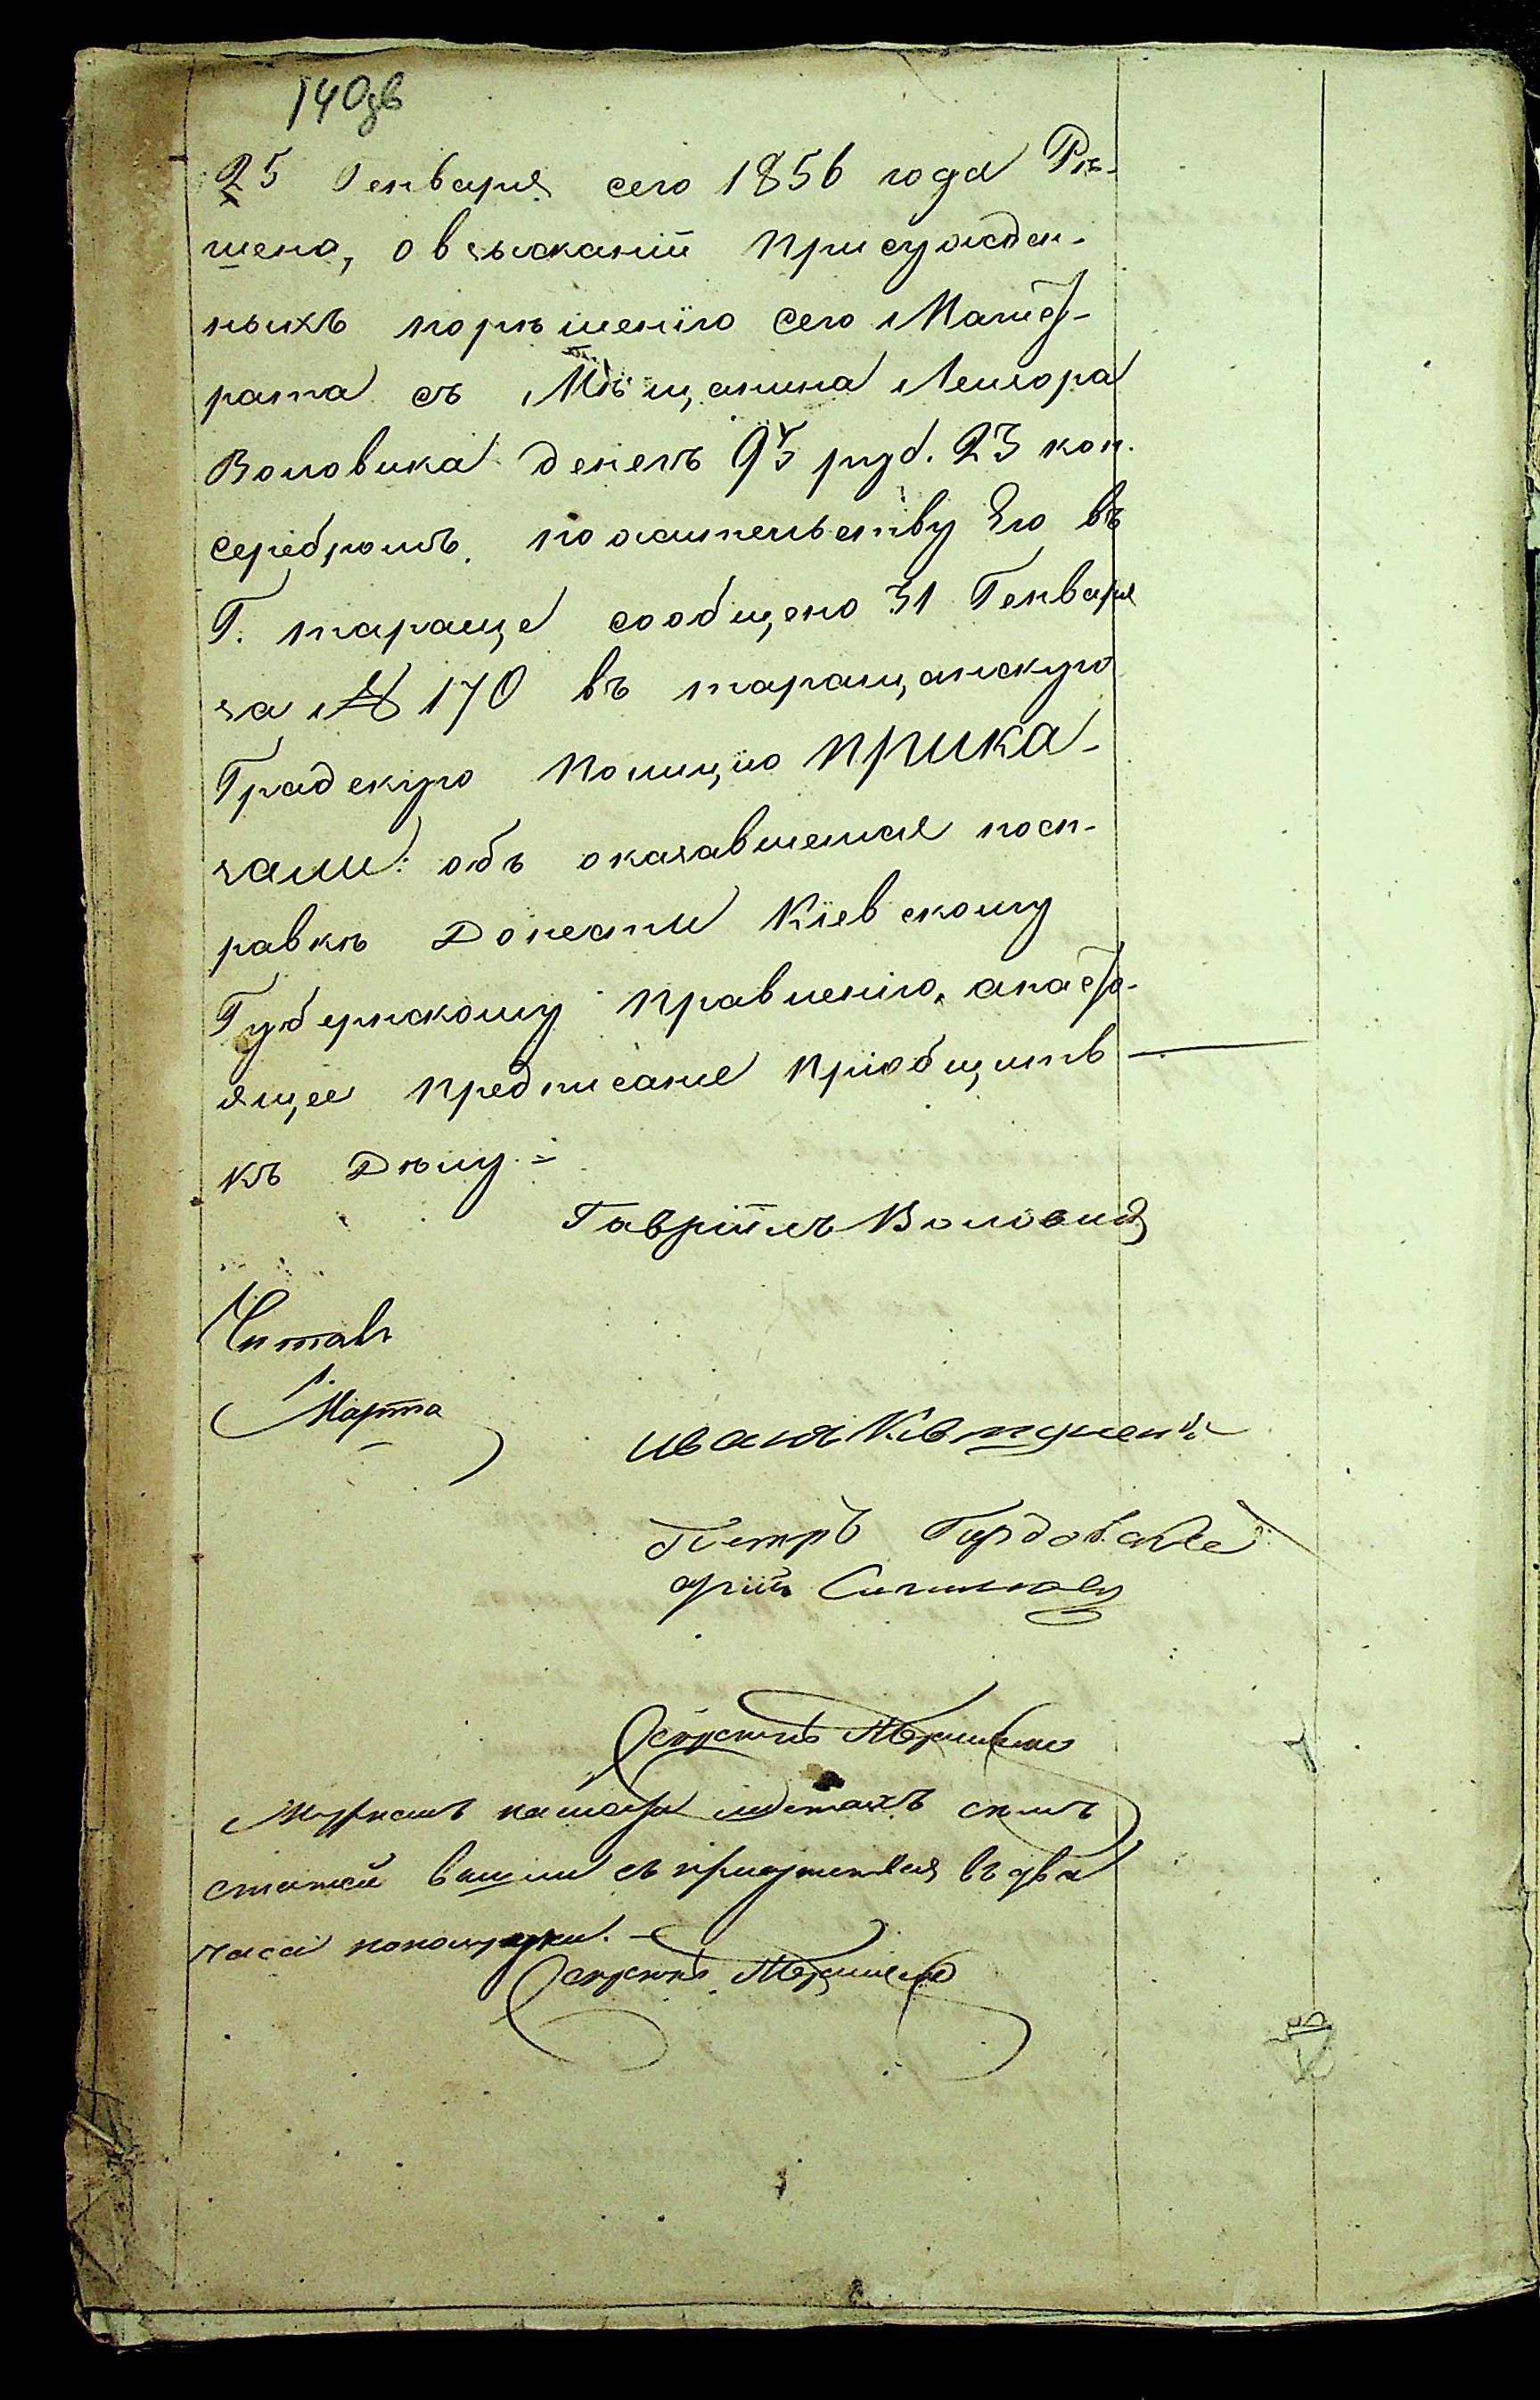 140зв
25 Генваря сего 1856 года Рѣ-
шено, о взысканіи присужден-
ныхъ порѣшенію сего Магист-
рата съ Мѣщанина Лейзора
Воловика денегъ 95 руб. 23 коп.
серебромъ. по жительству Его въ
Г. тараще сообщено 31 Генваря
за № 170 въ таращанскую
Градскую Полицию Прика-
зали: объ оказавшемся посп-
равкѣ Донести Кіевскому
Губернскому Правленію, анасто-
ящее предписание пріобщить
къ Дѣлу =
Гавріилъ Воловик
Читалъ
Марта
Иванъ
Петръ
Журналъ на шести листахъ
статей вышли съ присутствия въ два
часа пополудни. —